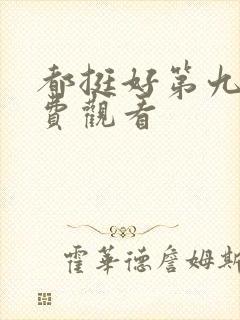 都挺好第九
費觀看
霍華德詹姆斯